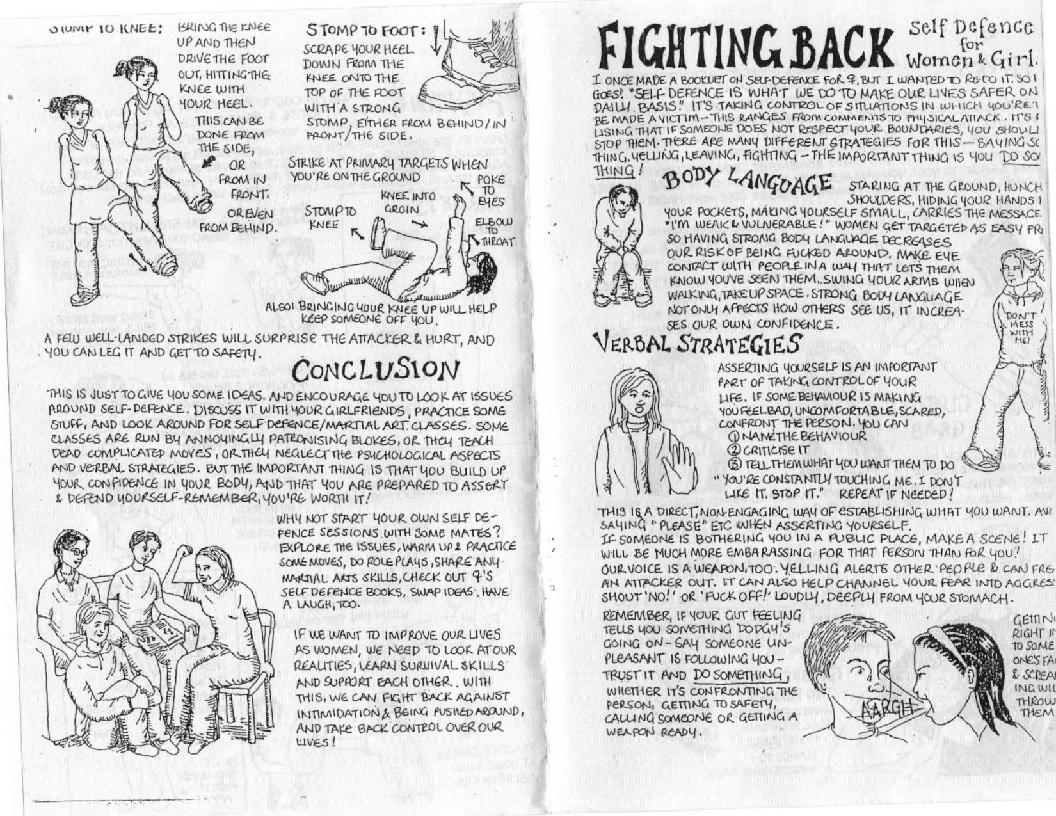 STOMP TO KNEE:
BRING THE KNEE
UP AND THEN
DRIVE THE FOOT
OUT, HITTING THE
KNEE WITH
YOUR HEEL.
THIS CAN BE
DONE FROM
THE SIDE,
OR
FROM IN
FRONT.
OR EVEN
FROM BEHIND.
STOMP TO FOOT:
SCRAPE YOUR HEEL
DOWN FROM THE
KNEE ONTO THE
TOP OF THE FOOT
WITH A STRONG
STOMP, EITHER FROM BEHIND/IN
FRONT/THE SIDE.
STRIKE AT PRIMARY TARGETS WHEN
YOU'RE ON THE GROUND
STOMP TO
KNEE
KNEE INTO
GROIN
POKE
TO
EYES
ELBOW
TO
THROAT
ALSO BRINGING YOUR KNEE UP WILL HELP
KEEP SOMEONE OFF YOU.
A FEW WELL-LANDED STRIKES WILL SURPRISE THE ATTACKER & HURT, AND
YOU CAN LEG IT AND GET TO SAFETY.
CONCLUSION
THIS IS JUST TO GIVE YOU SOME IDEAS. AND ENCOURAGE YOU TO LOOK AT ISSUES
AROUND SELF-DEFENCE. DISCUSS IT WITH YOUR GIRLFRIENDS, PRACTICE SOME
STUFF, AND LOOK AROUND FOR SELF DEFENCE/MARTIAL ART CLASSES. SOME
CLASSES ARE RUN BY ANNOYINGLY PATRONISING BLOKES, OR THEY TEACH
DEAD COMPLICATED MOVES, OR THEY NEGLECT THE PSYCHOLOGICAL ASPECTS
AND VERBAL STRATEGIES. BUT THE IMPORTANT THING IS THAT YOU BUILD UP
YOUR CONFIDENCE IN YOUR BODY, AND THAT YOU ARE PREPARED TO ASSERT
& DEFEND YOURSELF-REMEMBER, YOU'RE WORTH IT!
WHY NOT START YOUR OWN SELF DE-
FENCE SESSIONS WITH SOME MATES?
EXPLORE THE ISSUES, WARM UP & PRACTICE
SOME MOVES, DO ROLE PLAYS, SHARE ANY
MARTIAL ARTS SKILLS, CHECK OUT ♀'S
SELF DEFENCE BOOKS, SWAP IDEAS. HAVE
A LAUGH, TOO.
IF WE WANT TO IMPROVE OUR LIVES
AS WOMEN, WE NEED TO LOOK AT OUR
REALITIES, LEARN SURVIVAL SKILLS
AND SUPPORT EACH OTHER. WITH
THIS, WE CAN FIGHT BACK AGAINST
INTIMIDATION & BEING PUSHED AROUND,
AND TAKE BACK CONTROL OVER OUR
LIVES!
FIGHTING BACK
Self Defence
for
Women & Girl
I ONCE MADE A BOOKLET ON SELF-DEFENCE FOR ♀, BUT I WANTED TO RE-DO IT. SO I
GOES! "SELF-DEFENCE IS WHAT WE DO TO MAKE OUR LIVES SAFER ON
DAILY BASIS." IT'S TAKING CONTROL OF SITUATIONS IN WHICH YOU'RE
BE MADE A VICTIM—THIS RANGES FROM COMMENTS TO PHYSICAL ATTACK. IT'S
LISING THAT IF SOMEONE DOES NOT RESPECT YOUR BOUNDARIES, YOU SHOUL
STOP THEM. THERE ARE MANY DIFFERENT STRATEGIES FOR THIS—SAYING SO
THING, YELLING, LEAVING, FIGHTING - THE IMPORTANT THING IS YOU DO SO
THING!
BODY LANGUAGE
STARING AT THE GROUND, HUNCH
SHOULDERS, HIDING YOUR HANDS I
YOUR POCKETS, MAKING YOURSELF SMALL, CARRIES THE MESSAGE
"I'M WEAK & VULNERABLE!" WOMEN GET TARGETED AS EASY PR
SO HAVING STRONG BODY LANGUAGE DECREASES
OUR RISK OF BEING FUCKED AROUND. MAKE EYE
CONTACT WITH PEOPLE IN A WAY THAT LETS THEM
KNOW YOU'VE SEEN THEM. SWING YOUR ARMS WHEN
WALKING, TAKE UP SPACE. STRONG BODY LANGUAGE
NOT ONLY AFFECTS HOW OTHERS SEE US, IT INCREA-
SES OUR OWN CONFIDENCE.
DON'T
MESS
WITH
ME!
VERBAL STRATEGIES
ASSERTING YOURSELF IS AN IMPORTANT
PART OF TAKING CONTROL OF YOUR
LIFE. IF SOME BEHAVIOUR IS MAKING
YOU FEEL BAD, UNCOMFORTABLE, SCARED,
CONFRONT THE PERSON. YOU CAN
① NAME THE BEHAVIOUR
② CRITICISE IT
③ TELL THEM WHAT YOU WANT THEM TO DO
"YOU'RE CONSTANTLY TOUCHING ME. I DON'T
LIKE IT. STOP IT." REPEAT IF NEEDED!
THIS IS A DIRECT, NON-ENGAGING WAY OF ESTABLISHING WHAT YOU WANT. AV
SAYING "PLEASE" ETC WHEN ASSERTING YOURSELF.
IF SOMEONE IS BOTHERING YOU IN A PUBLIC PLACE, MAKE A SCENE! IT
WILL BE MUCH MORE EMBARASSING FOR THAT PERSON THAN FOR YOU!
OUR VOICE IS A WEAPON, TOO. YELLING ALERTS OTHER PEOPLE & CAN FRE
AN ATTACKER OUT. IT CAN ALSO HELP CHANNEL YOUR FEAR INTO AGGRES
SHOUT 'NO!' OR 'FUCK OFF!' LOUDLY, DEEPLY FROM YOUR STOMACH.
REMEMBER, IF YOUR GUT FEELING
TELLS YOU SOMETHING DODGY'S
GOING ON - SAY SOMEONE UN-
PLEASANT IS FOLLOWING YOU -
TRUST IT AND DO SOMETHING,
WHETHER IT'S CONFRONTING THE
PERSON, GETTING TO SAFETY,
CALLING SOMEONE OR GETTING A
WEAPON READY.
AARGH
GETTIN
RIGHT I
TO SOME
ONE'S FA
& SCREA
ING WIL
THROW
THEM